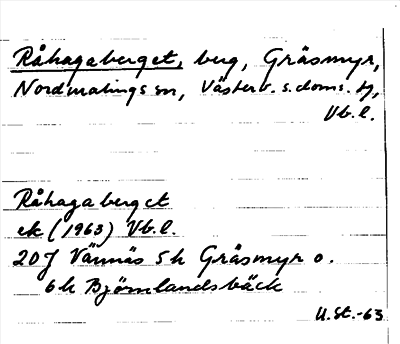 Råhagaberget, berg, Gräsmyr,
Nordmalings sn, Västerb. s. doms. tg,
Vb. l.
Råhagaberget
ek (1963) Vb. l.
20J Vännäs 5h Gräsmyr o.
6h Björnlandsbäck
U.St.-63